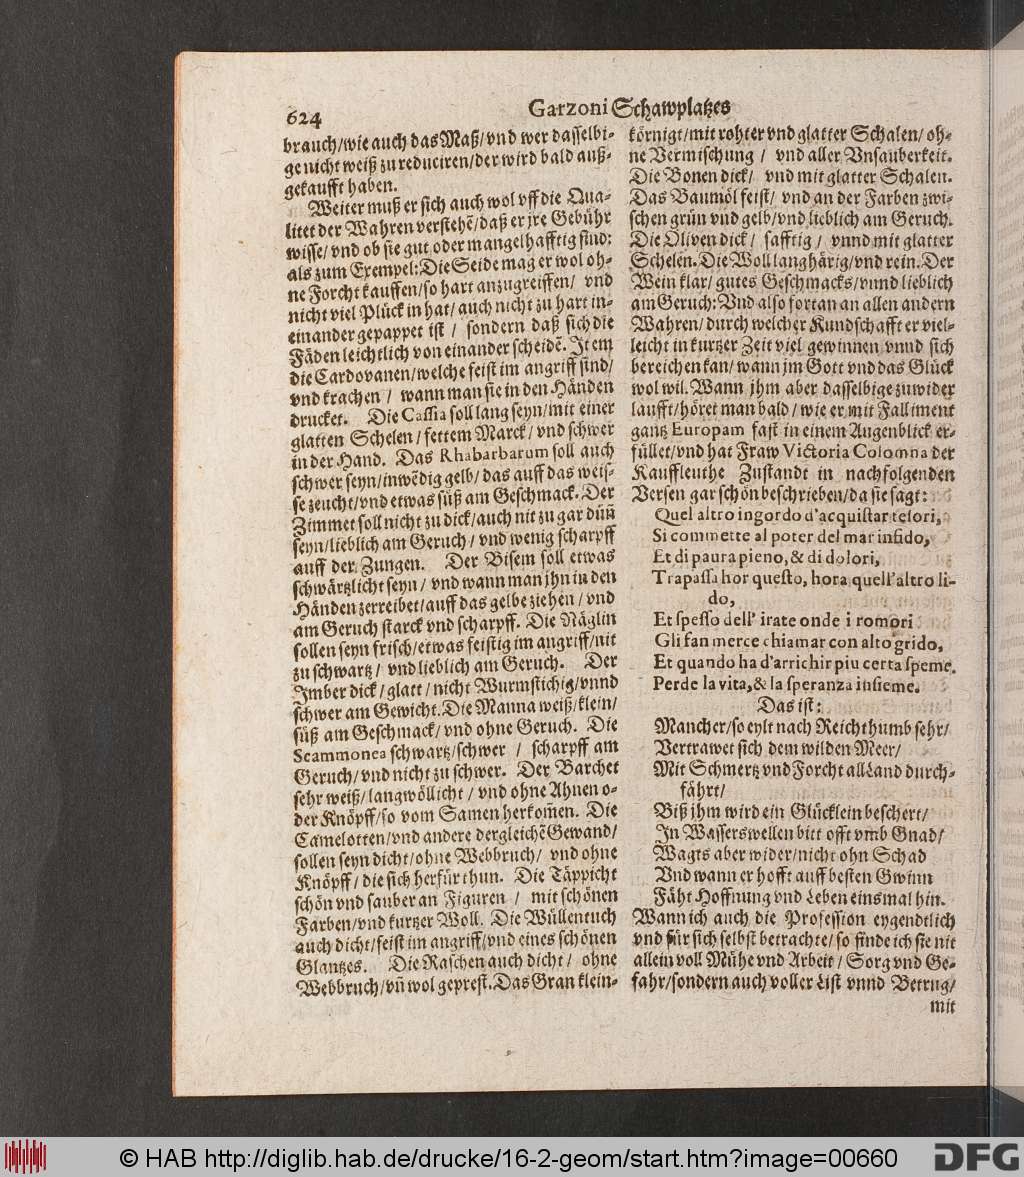 624
Garzoni Schawplatzes
brauch/wie auch das Maß/vnd wer dasselbi-
ge nicht weiß zu reduciren/der wird bald auß-
gekaufft haben.
Weiter muß er sich auch wol vff die Qua-
litet der Wahren verstehē/daß er jre Gebühr
wisse/vnd ob sie gut oder mangelhafftig sind:
als zum Exempel: Die Seide mag er wol oh-
ne Forcht kauffen/so hart anzugreiffen/ vnd
nicht viel Plück in hat/auch nicht zu hart in-
einander gepappet ist/ sondern daß sich die
Fäden leichtlich von einander scheidē. It em
die Cardovanen/welche feist im angriff sind/
vnd krachen/ wann man sie in den Händen
drucket. Die Cassia soll lang seyn/mit einer
glatten Schelen/fettem Marck/vnd schwer
in der Hand. Das Rhabarbarum soll auch
schwer seyn/inwēdig gelb/das auff das weis-
se zeucht/vnd etwas süß am Geschmack. Der
Zimmet soll nicht zu dick/auch nit zu gar dün̄
seyn/lieblich am Geruch/vnd wenig scharpff
auff der Zungen. Der Bisem soll etwas
schwärtzlicht seyn/ vnd wann man jhn in den
Händen zerreibet/auff das gelbe ziehen/vnd
am Geruch starck vnd scharpff. Die Näglin
sollen seyn frisch/etwas feistig im angriff/nit
zu schwartz/ vnd lieblich am Geruch. Der
Imber dick/glatt/nicht Wurmstichig/vnnd
schwer am Gewicht. Die Manna weiß/klein/
süß am Geschmack/vnd ohne Geruch. Die
Scammonea schwartz/schwer/ scharpff am
Geruch/vnd nicht zu schwer. Der Barchet
sehr weiß/langwöllicht/vnd ohne Ahnen o-
der Knöpff/so vom Samen herkom̄en. Die
Camelotten/vnd andere dergleichē Gewand/
sollen seyn dicht/ohne Webbruch/ vnd ohne
Knöpff/die sich herfür thun. Die Täppicht
schön vnd sauber an Figuren/ mit schönen
Farben/vnd kurtzer Woll. Die Wüllentuch
auch dicht/feist im angriff/vnd eines schönen
Glantzes. Die Raschen auch dicht/ ohne
Webbruch/vn̄ wol geprest. Das Gran klein-
körnigt/mit rohter vnd glatter Schalen/oh-
ne Vermischung/ vnd aller Vnsauberkeit.
Die Bonen dick/ vnd mit glatter Schalen.
Das Baumöl feist/ vnd an der Farben zwi-
schen grün vnd gelb/vnd lieblich am Geruch.
Die Oliven dick/ safftig/ vnnd mit glatter
Schelen. Die Woll langhärig/vnd rein. Der
Wein klar/gutes Geschmacks/vnnd lieblich
am Geruch: Vnd also fortan an allen andern
Wahren/durch welcher Kundschafft er viel-
leicht in kurtzer Zeit viel gewinnen vnnd sich
bereichen kan/wann jm Gott vnd das Glück
wol wil. Wann jhm aber dasselbige zuwider
laufft/höret man bald/wie er mit Falliment
gantz Europam fast in einem Augenblick er-
füllet/vnd hat Fraw Victoria Colomna der
Kauffleuthe Zustandt in nachfolgenden
Versen gar schön beschrieben/da sie sagt:
Quel altro ingordo d'acquistar tesori,
Si commette al poter del mar infido,
Et di paura pieno, & di dolori,
Trapassa hor questo, hora quell'altro li-
do,
Et spesso dell' irate onde i romori
Gli fan merce chiamar con alto grido,
Et quando ha d'arrichir piu certa speme.
Perde la vita,& la speranza insieme.
Das ist:
Mancher/so eylt nach Reichthumb sehr/
Vertrawet sich dem wilden Meer/
Mit Schmertz vnd Forcht all Land durch-
fährt/
Biß jhm wird ein Glücklein beschert/
In Wasserswellen bitt offt vmb Gnad/
Wagts aber wider/nicht ohn Schad
Vnd wann er hofft auff besten Gwinn
Fäht Hoffnung vnd Leben einsmal hin.
Wann ich auch die Profession eygendtlich
vnd für sich selbst betrachte/so finde ich sie nit
allein voll Mühe vnd Arbeit/Sorg vnd Ge-
fahr/sondern auch voller List vnnd Betrug/
mit
© HAB http://diglib.hab.de/drucke/16-2-geom/start.htm?image=00660
DFG